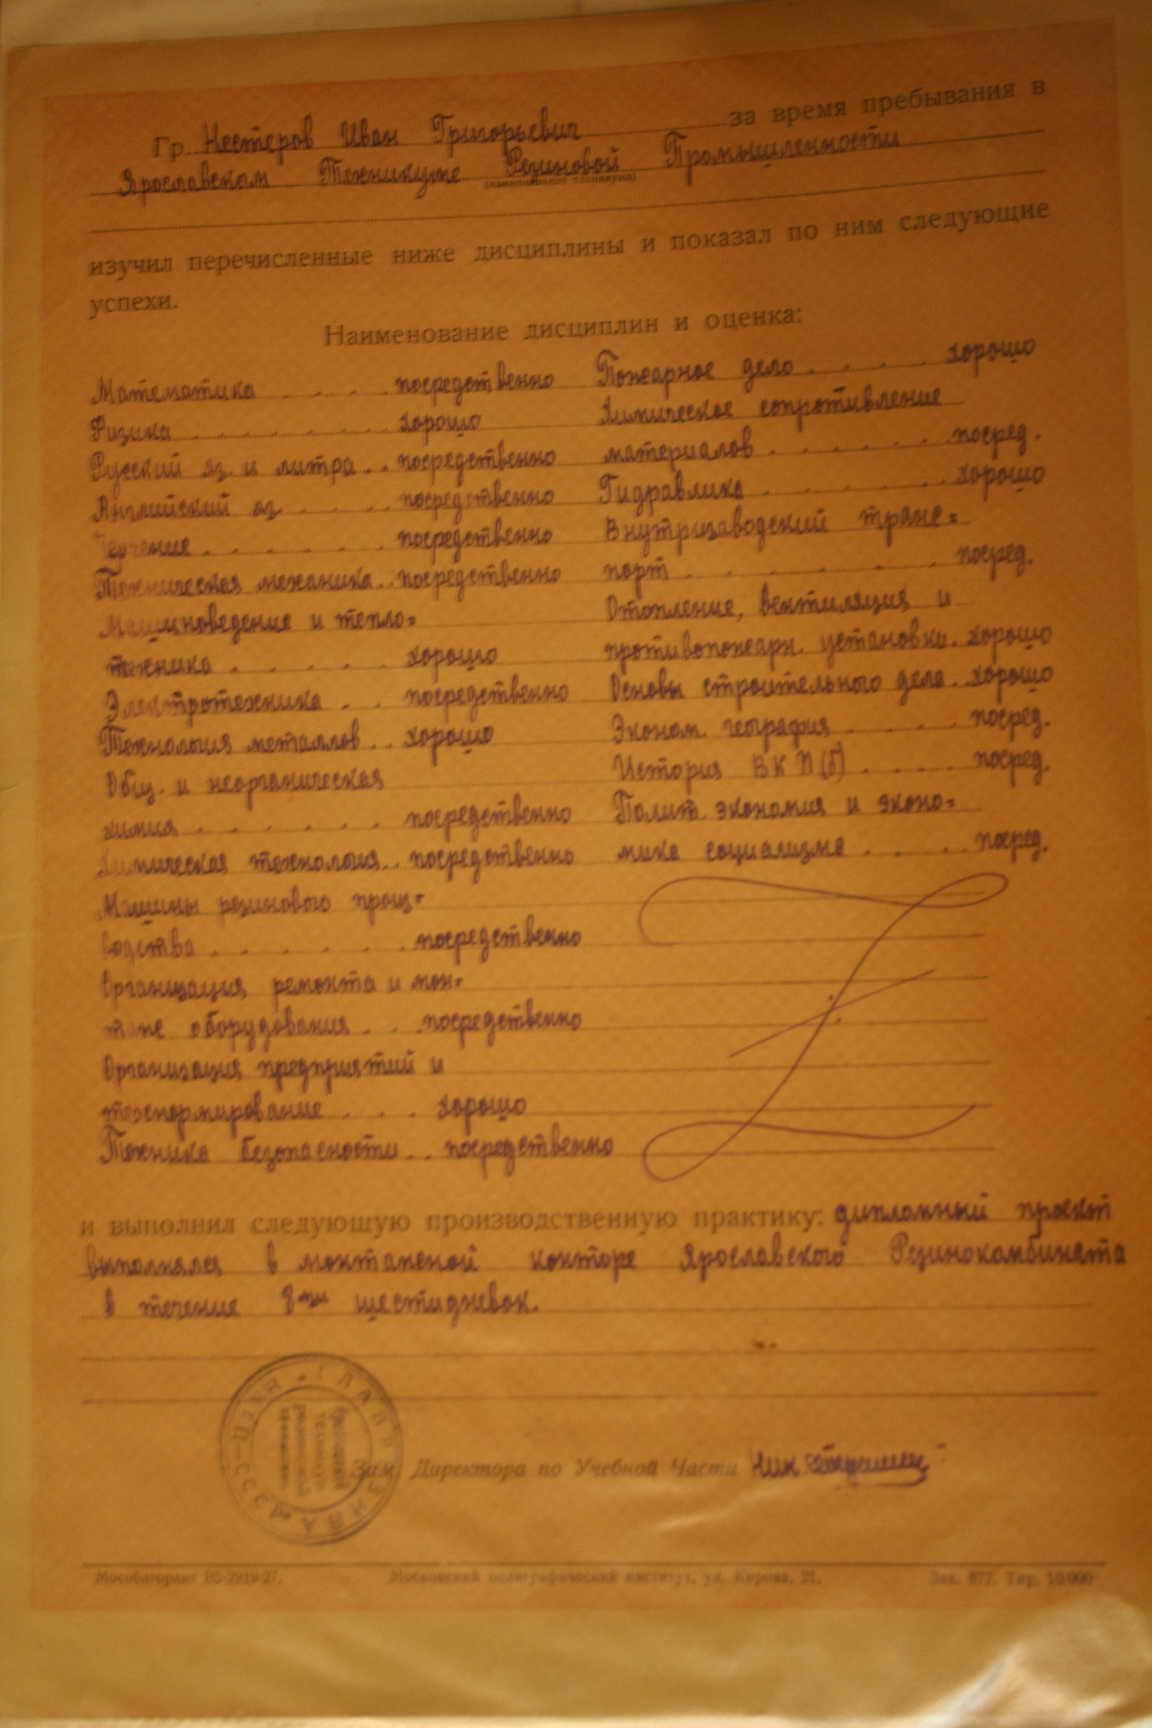 Гр. Нестеров Иван Григорьевич за время пребывания в
Ярославском Техникуме Резиновой Промышленности
(наименование техникума)
изучил перечисленные ниже дисциплины и показал по ним следующие
успехи.
Наименование дисциплин и оценка:
Математика . . . . посредственно
Физика . . . . . . . . хорошо
Русский яз. и литра . . посредственно
Английский яз. . . . . посредственно
Черчение . . . . . . . посредственно
Техническая механика . . посредственно
Машиноведение и тепло=
техника . . . . . хорошо
Электротехника . . посредственно
Технология металлов . . хорошо
Общ. и неорганическая
химия . . . . . . посредственно
Химическая технология . . посредственно
Машины резинового произ=
водства . . . . . . посредственно
Организация ремонта и мон=
таже оборудования . . . посредственно
Организация предприятий и
технормирование . . . хорошо
Техника безопасности . . посредственно
Пожарное дело . . . . хорошо
Химическое сопротивление
материалов . . . . . . посред.
Гидравлика . . . . . . хорошо
Внутризаводский транс=
порт . . . . . . . посред.
Отопление, вентиляция и
противопожарн. установки . хорошо
Основы строительного дела . . хорошо
Эконом. география . . . . посред.
История ВКП(б) . . . . посред.
Полит. экономия и эконо=
мика социализма . . . . посред.
и выполнил следующую производственную практику: дипломный проект
выполнялся в монтажной конторе Ярославского Резинокомбината
в течение 8ми шестидневок.
ГЛАВРЕЗИНА
СССР
Зам. Директора по Учебной Части
Московский полиграфический институт, ул. Кирова, 21.
Зак. 677. Тир. 10.000